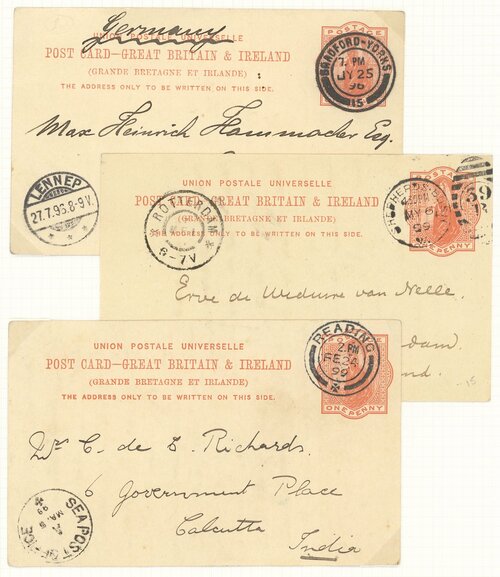 Germany
UNION POSTALE UNIVERSELLE
POST CARD–GREAT BRITAIN & IRELAND
(GRANDE BRETAGNE ET IRLANDE)
THE ADDRESS ONLY TO BE WRITTEN ON THIS SIDE.
POSTAGE
BRADFORD-YORKS
7. PM
JY 25
96
15
Max Heinrich Hammacher Esq.
LENNEP
27.7.96.8-9V.
UNION POSTALE UNIVERSELLE
POST CARD–GREAT BRITAIN & IRELAND
(GRANDE BRETAGNE ET IRLANDE)
THE ADDRESS ONLY TO BE WRITTEN ON THIS SIDE.
POSTAGE
ONE PENNY
MY 6
99
59
ROTTERDAM
6-7V
Erve de Weduwe van Nelle.
dam.
nd.
15
UNION POSTALE UNIVERSELLE
POST CARD–GREAT BRITAIN & IRELAND
(GRANDE BRETAGNE ET IRLANDE)
THE ADDRESS ONLY TO BE WRITTEN ON THIS SIDE.
ONE PENNY
READING
2. PM
FE 24
99
C. de S. Richards.
6 Government Place
Calcutta
India
SEA POST OFFICE
A
99